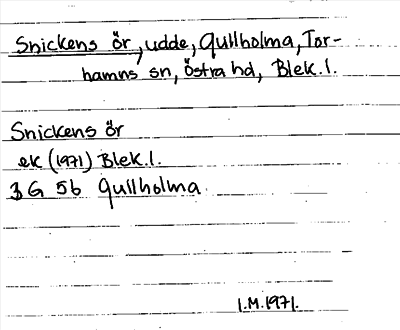 Snickens ör, udde, Gullholma, Tor-
hamns sn, östra hd, Blek.l.
Snickens ör
ek (1971) Blek.l.
3 G 5b Gullholma
I.M.1971.